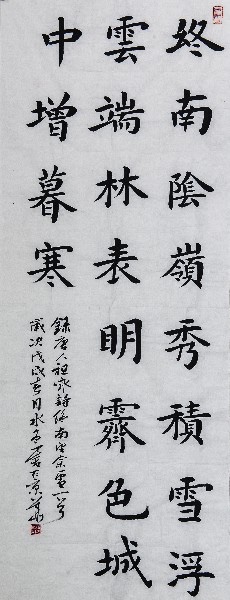 终南陰嶺秀積雪浮
雲端林表明霽色城
中增暮寒
錄唐人祖詠詩終南望余雪一首
歲次戊戌